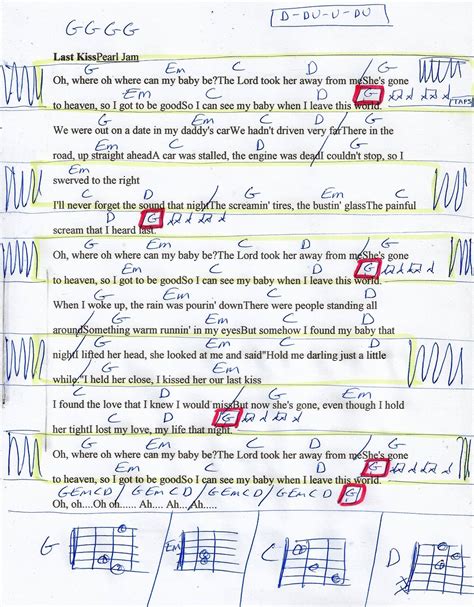 G G G G
D-DU-U-DU
Last KissPearl Jam
G Em C D G
Oh, where oh where can my baby be?The Lord took her away from meShe's gone
Em C D G
to heaven, so I got to be goodSo I can see my baby when I leave this world.
TAPS
G Em C D
We were out on a date in my daddy's carWe hadn't driven very farThere in the
G Em C D
road, up straight aheadA car was stalled, the engine was deadI couldn't stop, so I
G Em
swerved to the right
C D G Em C
I'll never forget the sound that nightThe screamin' tires, the bustin' glassThe painful
D G
scream that I heard last.
G Em C D G
Oh, where oh where can my baby be?The Lord took her away from meShe's gone
Em C D G
to heaven, so I got to be goodSo I can see my baby when I leave this world.
G Em C D
When I woke up, the rain was pourin' downThere were people standing all
G Em C D
aroundSomething warm runnin' in my eyesBut somehow I found my baby that
G Em C D
nightI lifted her head, she looked at me and said"Hold me darling just a little
G Em C D
while."I held her close, I kissed her our last kiss
G Em C D
I found the love that I knew I would missBut now she's gone, even though I hold
G Em C D G
her tightI lost my love, my life that night.
G Em C D G
Oh, where oh where can my baby be?The Lord took her away from meShe's gone
Em C D G
to heaven, so I got to be goodSo I can see my baby when I leave this world.
G Em C D / G Em C D / G Em C D / G Em C D / G
Oh, oh....Oh oh...... Ah.... Ah....Ah.....
G Em C D